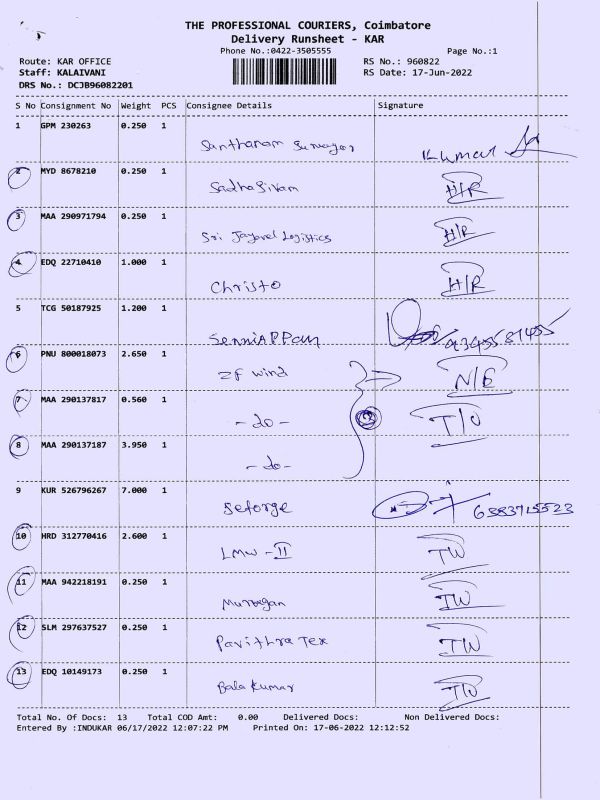 THE PROFESSIONAL COURIERS, Coimbatore
Delivery Runsheet - KAR
Phone No.:0422-3505555 Page No.:1
Route: KAR OFFICE RS No.: 960822
Staff: KALAIVANI RS Date: 17-Jun-2022
DRS No.: DCJB96082201
S No Consignment No Weight PCS Consignee Details Signature
1 GPM 230263 0.250 1
Santhanam Kumar
2 MYD 8678210 0.250 1
Sadhasivam H/R
3 MAA 290971794 0.250 1
Sri Jayavel Logistics H/R
4 EDQ 22710410 1.000 1
Christo H/R
5 TCG 50187925 1.200 1
SenniAPPan 9345581455
6 PNU 800018073 2.650 1
ZF wind N/E
7 MAA 290137817 0.560 1
-do- T/O
8 MAA 290137187 3.950 1
-do-
9 KUR 526796267 7.000 1
Seforge 6383715523
10 HRD 312770416 2.600 1
LMW -II TW
11 MAA 942218191 0.250 1
Murugan TW
12 SLM 297637527 0.250 1
Pavithra Tex TW
13 EDQ 10149173 0.250 1
Bala kumar TW
Total No. Of Docs: 13 Total COD Amt: 0.00 Delivered Docs: Non Delivered Docs:
Entered By :INDUKAR 06/17/2022 12:07:22 PM Printed On: 17-06-2022 12:12:52